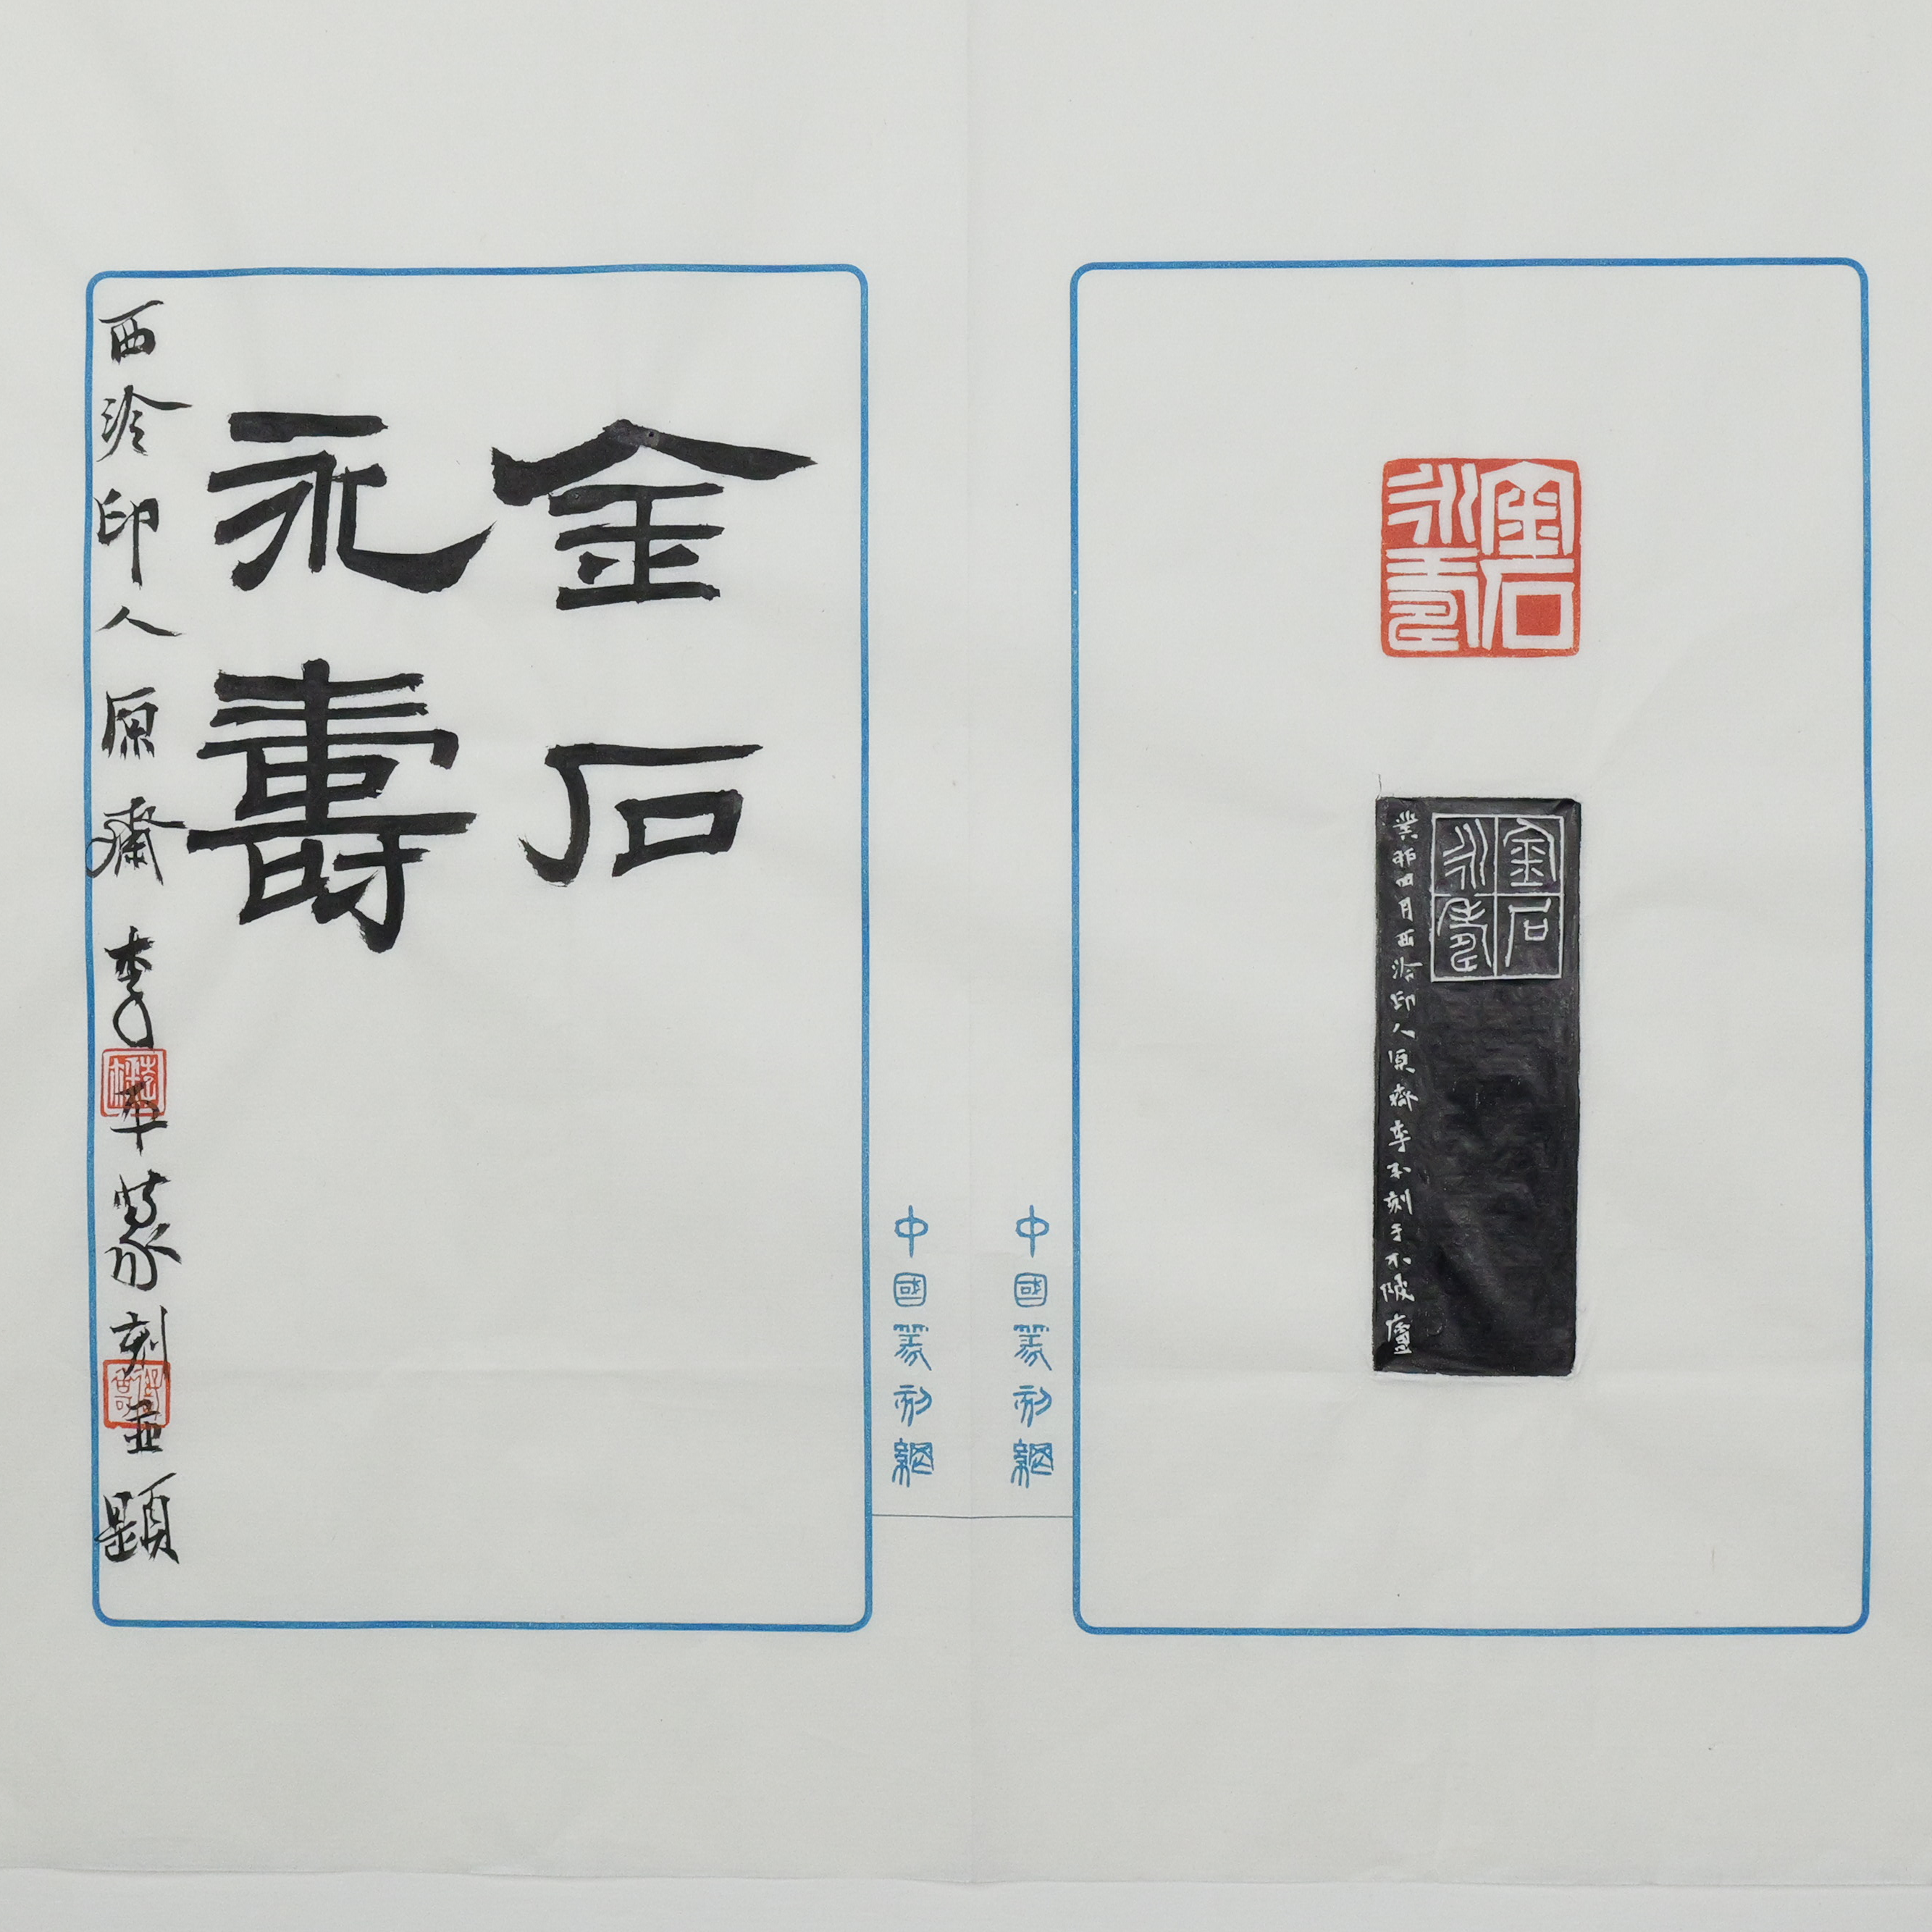 金石
永壽
金石
永壽
癸卯四月西泠印人原齋李平刻于不陂廬
中國篆刻網
中國篆刻網
金石
永壽
西泠印人原齋李平篆刻並題